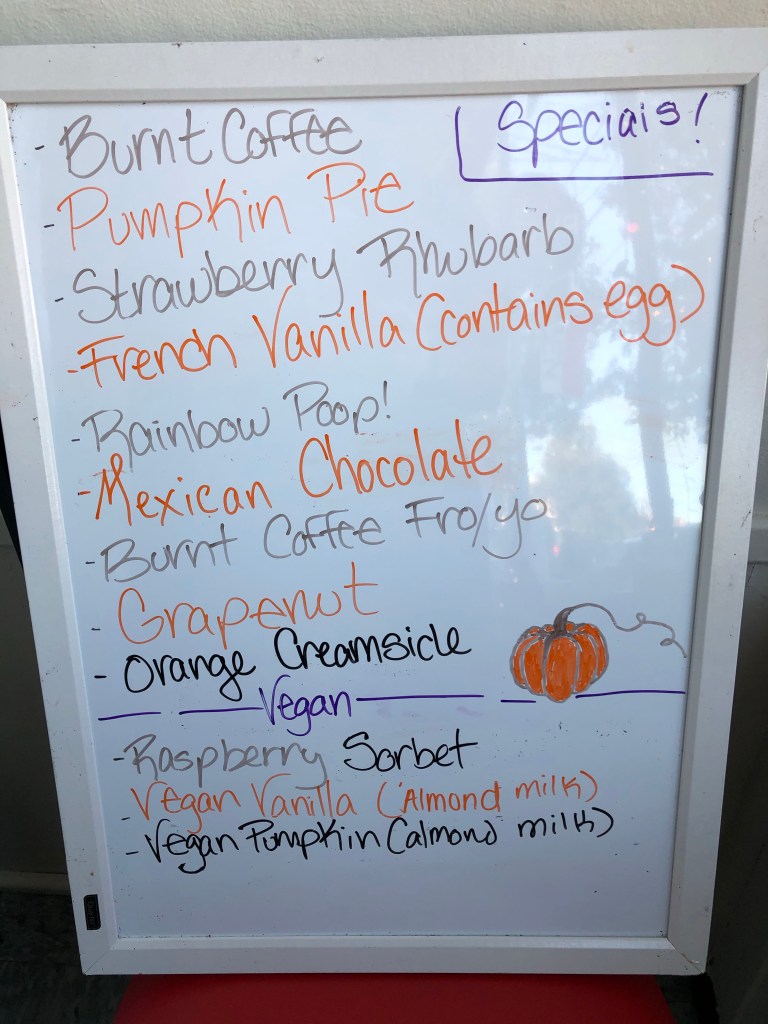 Specials!
- Burnt Coffee
- Pumpkin Pie
- Strawberry Rhubarb
- French Vanilla (contains egg)
- Rainbow Poop!
- Mexican Chocolate
- Burnt Coffee Fro/yo
- Grapenut
- Orange Creamsicle
Vegan
- Raspberry Sorbet
- Vegan Vanilla (Almond milk)
- Vegan Pumpkin (almond milk)